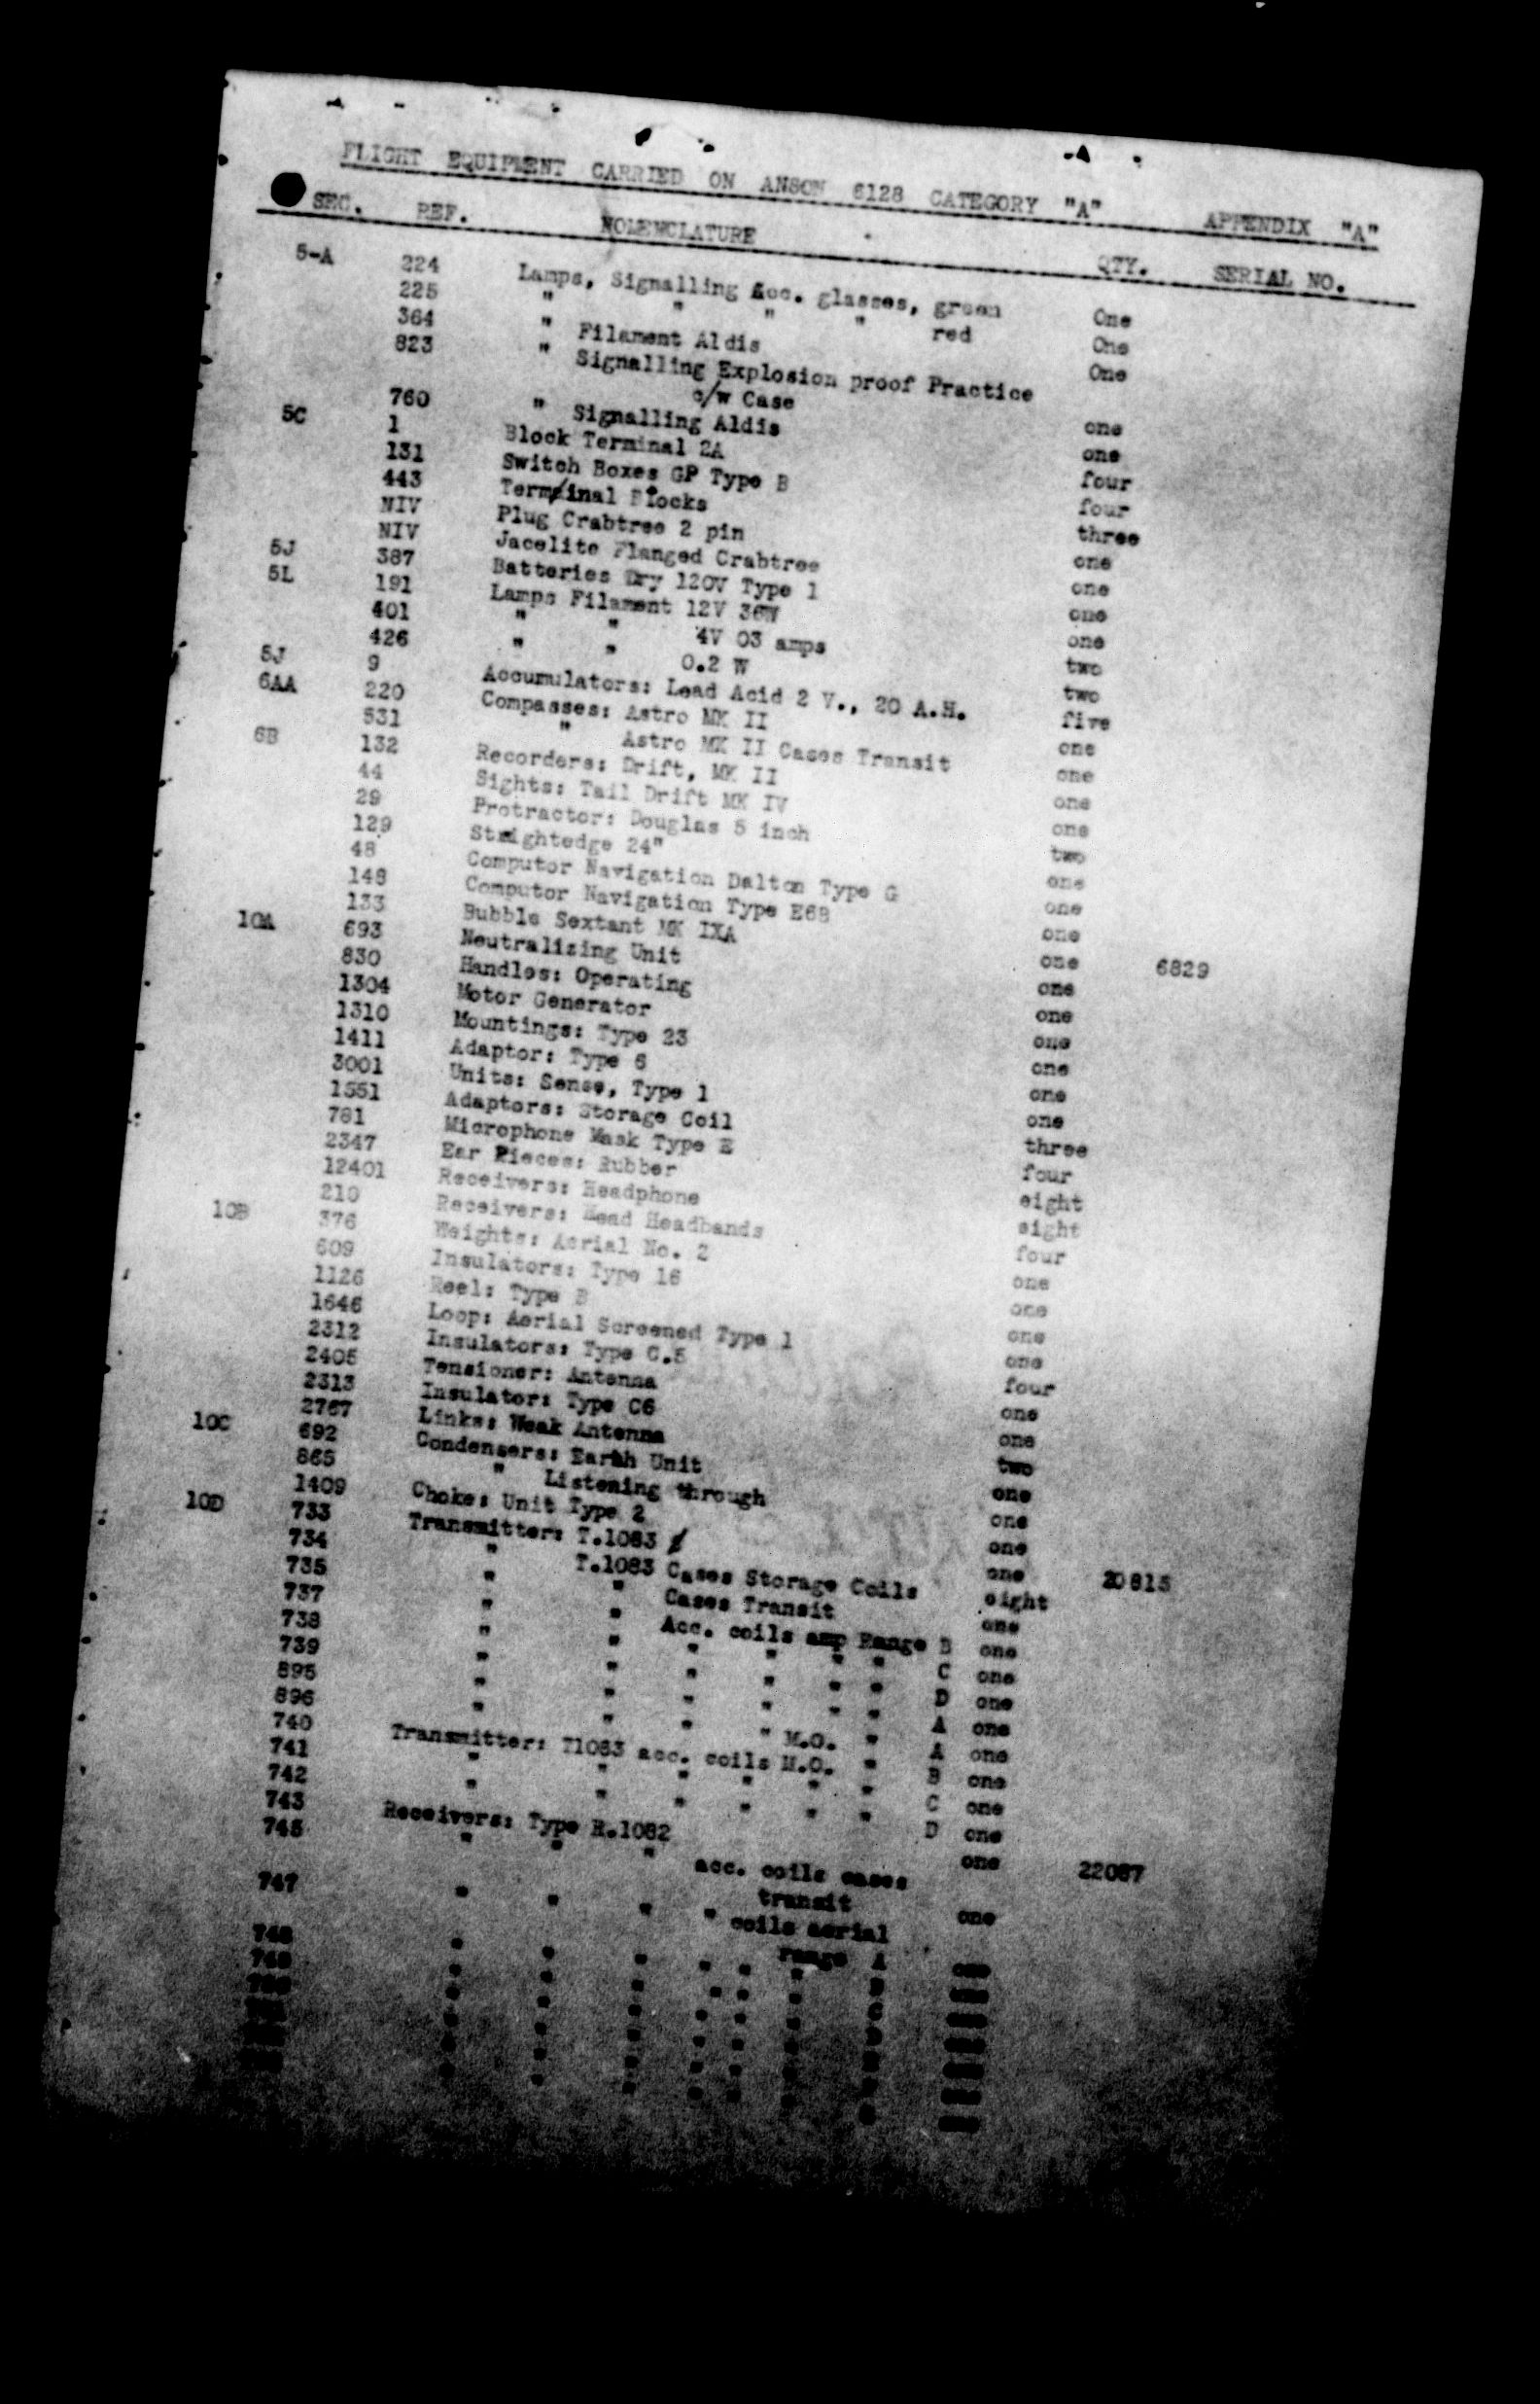 FLIGHT EQUIPMENT CARRIED ON ANSON 6128 CATEGORY "A" APPENDIX "A"
SEC. REF. NOMENCLATURE QTY. SERIAL NO.
5-A 224 Lamps, Signalling Acc. glasses, green One
225 " " " " red One
364 " Filament Aldis One
823 " Signalling Explosion proof Practice
c/w Case one
760 " Signalling Aldis one
5C 1 Block Terminal 2A four
131 Switch Boxes GP Type B four
443 Terminal Blocks three
NIV Plug Crabtree 2 pin one
NIV Jacelite Flanged Crabtree one
5J 387 Batteries Dry 120V Type 1 one
5L 191 Lamps Filament 12V 36W one
401 " " 4V 03 amps two
426 " " 0.2 W two
5J 9 Accumulators: Lead Acid 2 V., 20 A.H. five
6AA 220 Compasses: Astro MK II one
531 " Astro MK II Cases Transit one
6B 132 Recorders: Drift, MK II one
44 Sights: Tail Drift MK IV one
29 Protractor: Douglas 5 inch two
129 Straightedge 24" one
48 Computor Navigation Dalton Type G one
148 Computor Navigation Type E6B one
133 Bubble Sextant MK IXA one 6829
10A 693 Neutralizing Unit one
830 Handles: Operating one
1304 Motor Generator one
1310 Mountings: Type 23 one
1411 Adaptor: Type 6 one
3001 Units: Sense, Type 1 one
1551 Adaptors: Storage Coil three
781 Microphone Mask Type E four
2347 Ear Pieces: Rubber eight
12401 Receivers: Headphone eight
210 Receivers: Head Headbands four
10B 376 Weights: Aerial No. 2 one
609 Insulators: Type 16 one
1126 Reel: Type B one
1646 Loop: Aerial Screened Type 1 one
2312 Insulators: Type C.5 four
2405 Tensioner: Antenna one
2313 Insulator: Type C6 one
2767 Links: Weak Antenna two
10C 692 Condensers: Earth Unit one
865 " Listening through one
1409 Choke: Unit Type 2 one
10D 733 Transmitter: T.1083 one 20815
734 " T.1083 Cases Storage Coils eight
735 " " Cases Transit one
737 " " Acc. coils amp Range B one
738 " " " " " " C one
739 " " " " " " D one
895 " " " " " " A one
896 " " " " M.O. " A one
740 Transmitter: T1083 acc. coils M.O. " B one
741 " " " " " " C one
742 " " " " " " D one
743 Receivers: Type R.1082 one 22087
745 " " " acc. coils cases
transit one
747 " " " " coils aerial
range A one
748 " " " " " " B
749 " " " " " " C